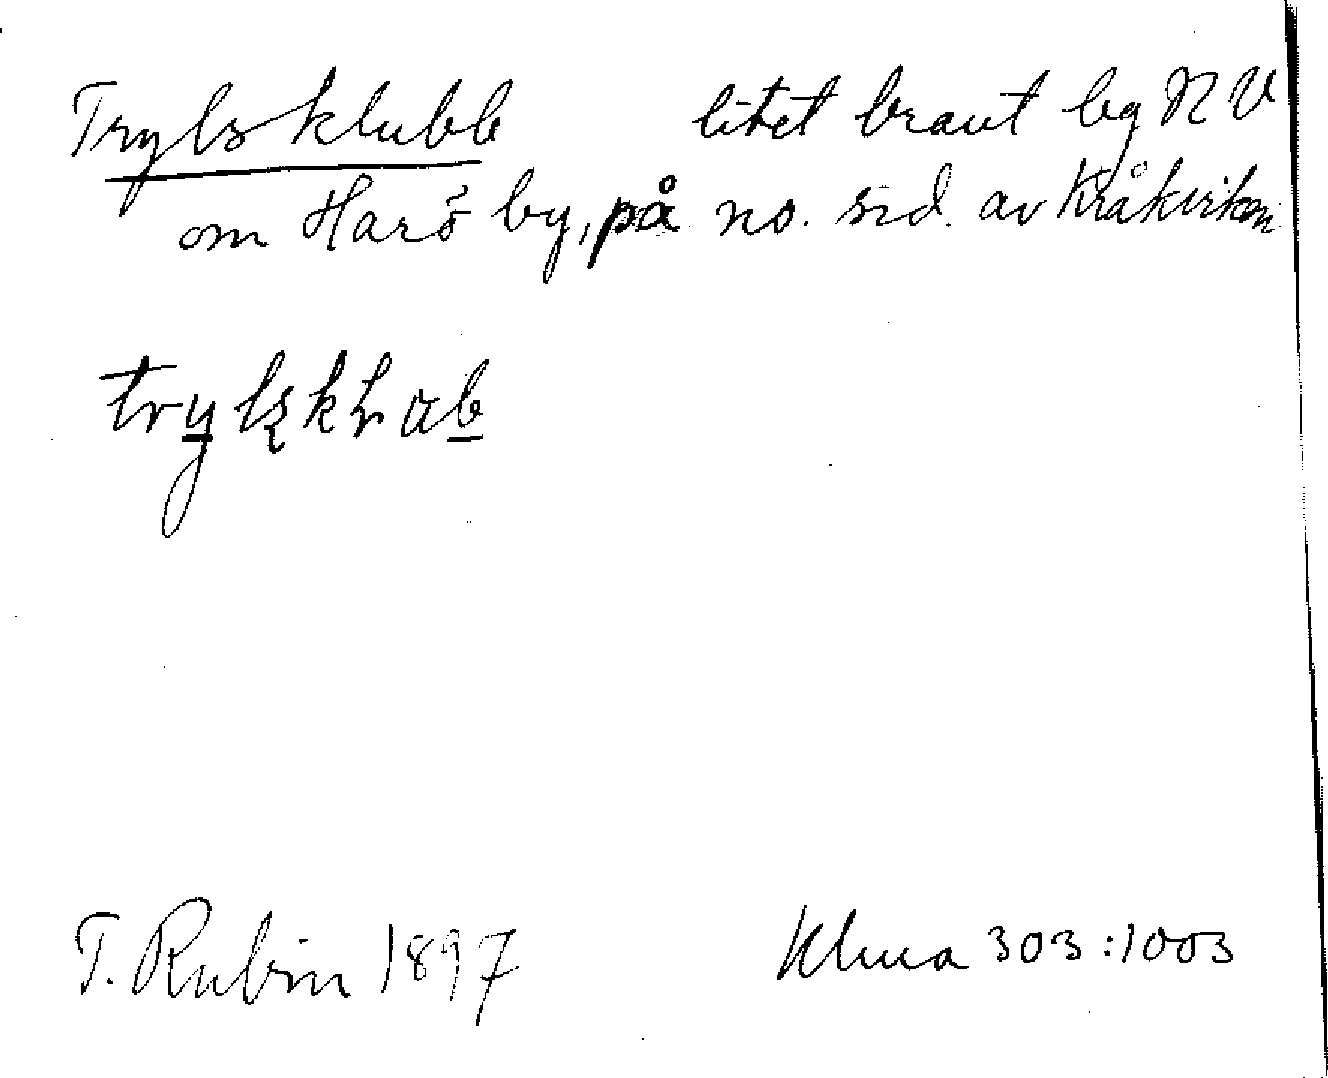 Trylsklubb litet brant bg NV
om Harö by, på no. sid. av Kråkviken
T. Rubin 1897 Klova 303:1003